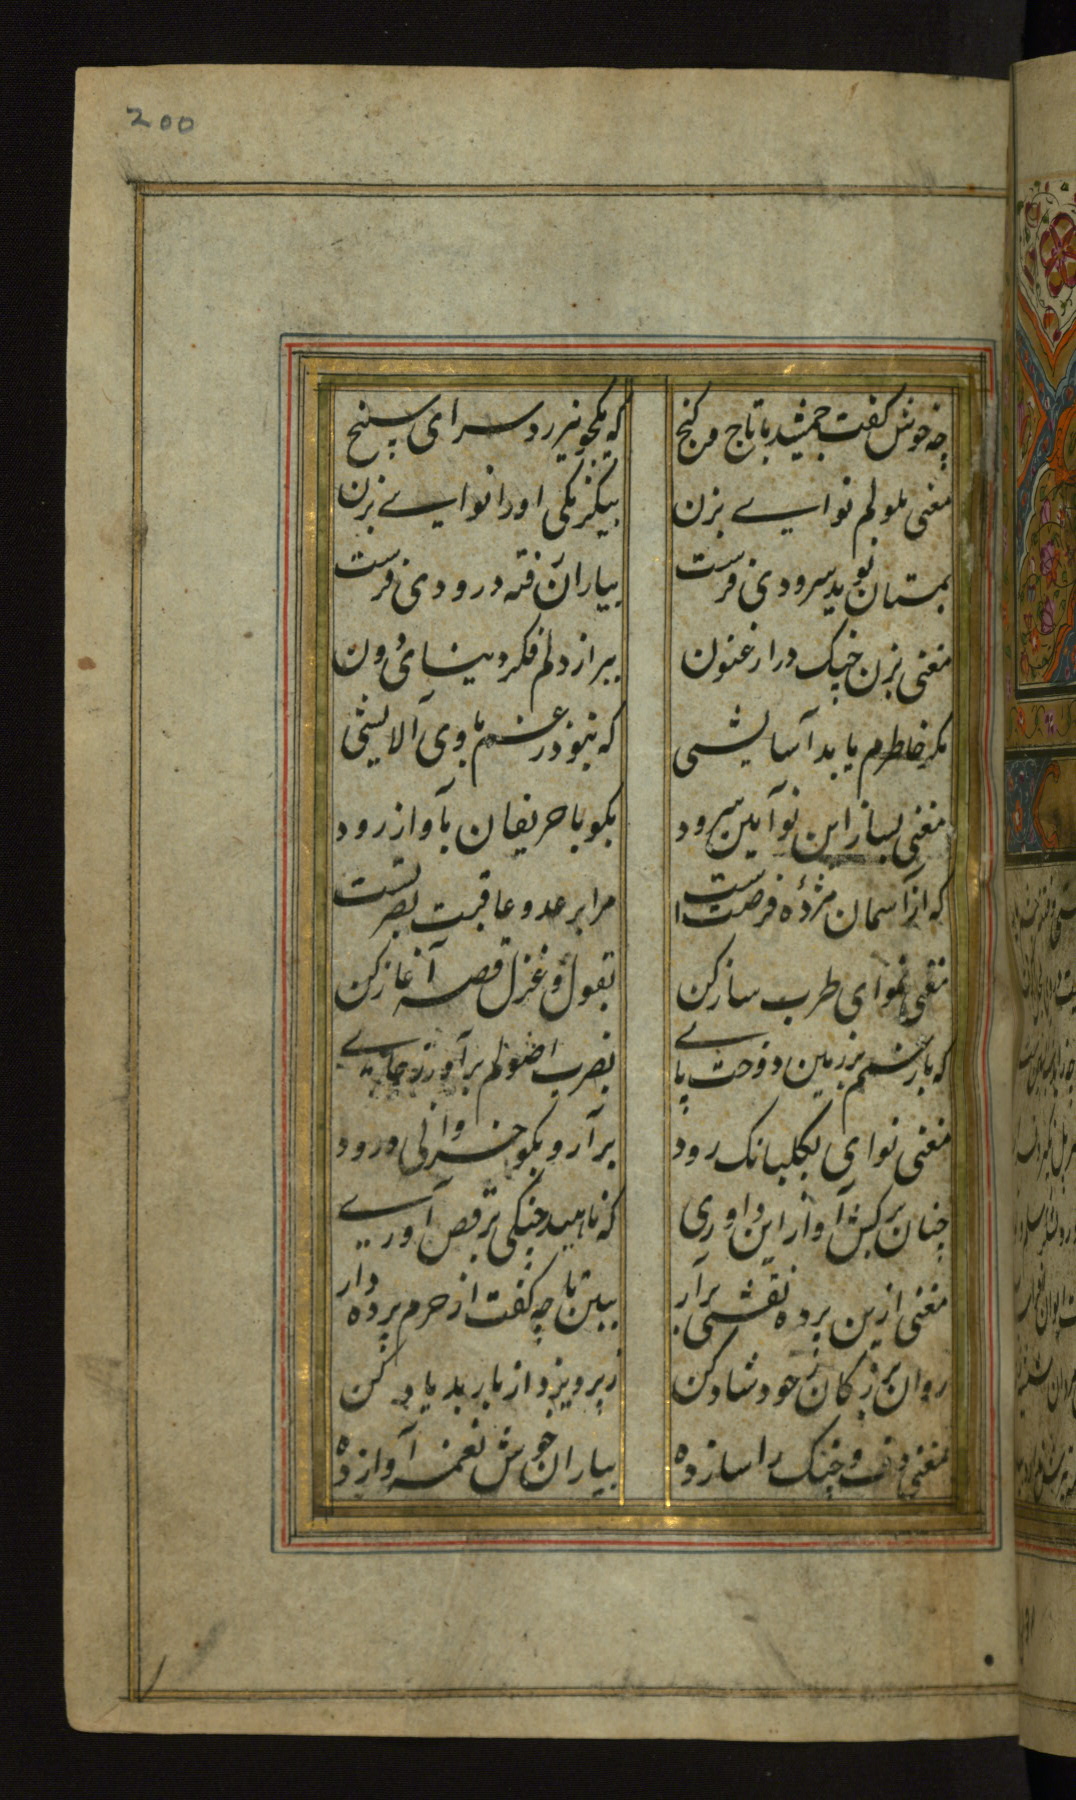 200
چه خوش گفت جمشید با تاج و کنج که یکجو نیرزد سرای سپنج
مغنی ملولم نوایے بزن بیکتر یکی او را نوایے بزن
بمستان نوید سرودی فرست بیاران رفته درودی فرست
مغنی بزن چنک در ارغنون ببر از دلم فکر دینای دون
مکر خاطرم یابد آسایشی که نبود ز غم با وی آلایشی
مغنی بساز این نو آیین سرود بکو با حریفان بآواز رود
که از آسمان مژدهٔ فرصت است مرا بر عدو عاقبت نصرتست
مغنی نوای طرب ساز کن بقول و غزل قصه آغاز کن
که بار غمم بر زمین دوخت پای بضرب اصولم برآور ز جایے
مغنی نوای بکلبانک رود برآر و بکو خسروانی درود
چنان برکش آواز این داوری که ناهید چنکی برقص آوریے
مغنی ازین پرده نقشی برآر ببین تا چه کفت از حرم پرده دار
روان بزرکان ز خود شاد کن ز پرویز و از باربد یاد کن
مغنی دف و چنک را ساز ده بیاران خوش نغمه آواز ده